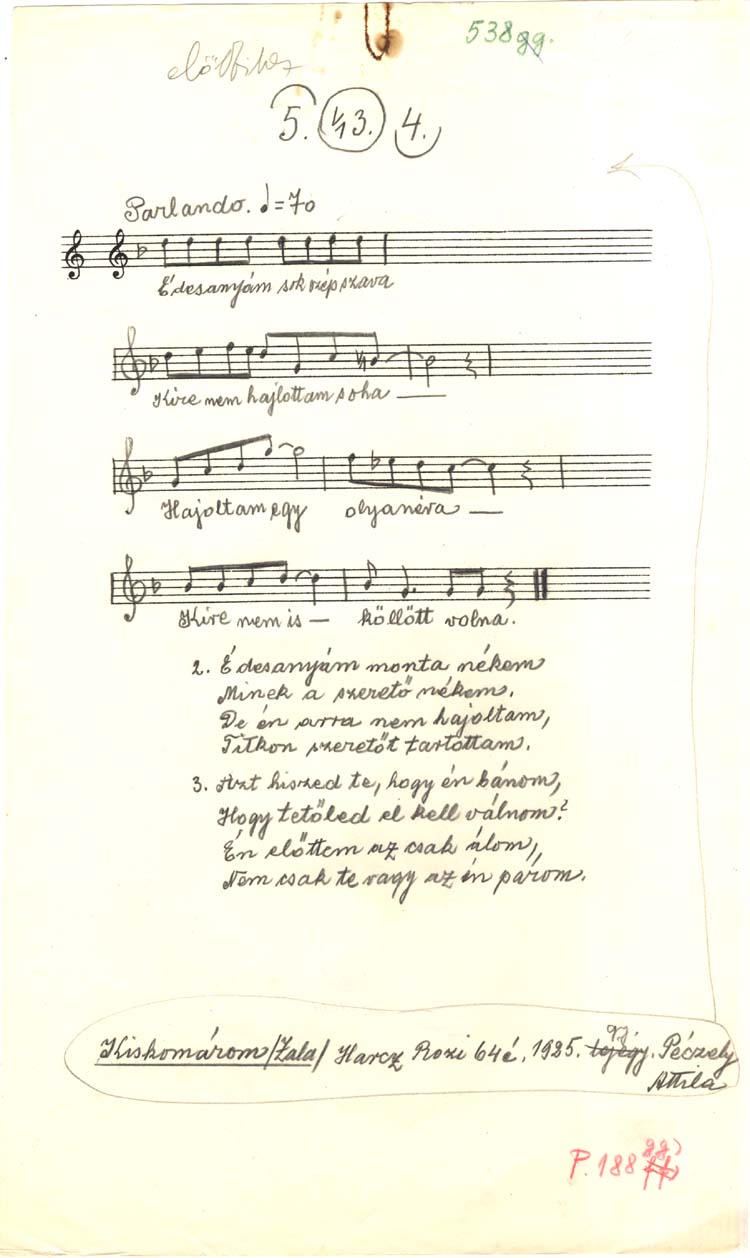 538gg.
5. 13. 4.
Parlando. ♩=70
Édesanyám sok szép szava
Kire nem hajlottam soha —
Hajoltam egy olyanéra —
Kire nem is — köllött volna.
2. Édesanyám monta nékem
Minek a szerető nékem.
De én arra nem hajoltam,
Titkon szeretőt tartottam.
3. Azt hiszed te, hogy én bánom,
Hogy tetőled el kell válnom?
Én előttem az csak álom,
Nem csak te vagy az én párom.
Kiskomárom/Zala/ Harcz Rozi 64é, 1925. gy. Péczely
Attila
P. 188 gg)